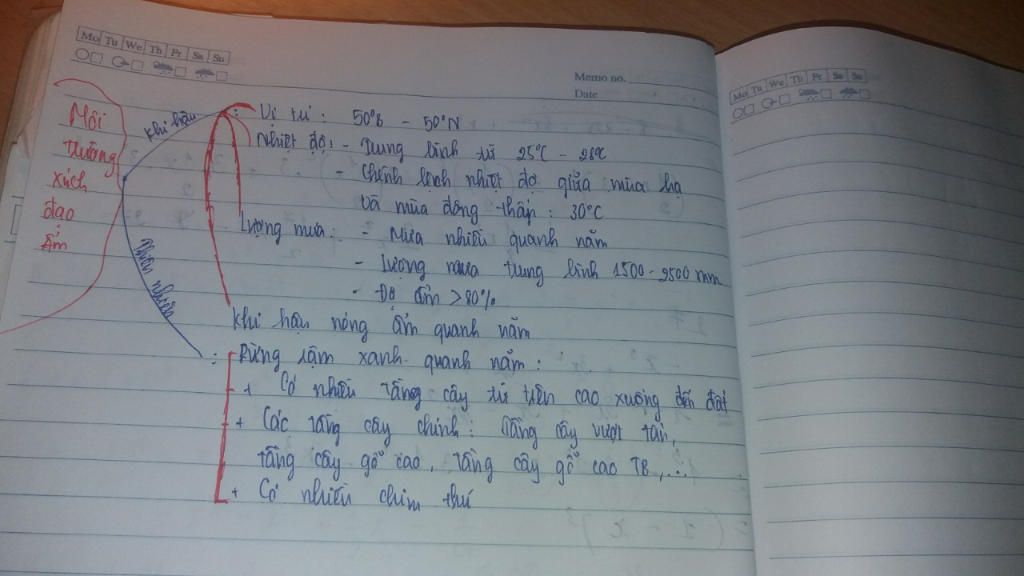 Mo Tu We Th Fr Sa Su
Memo no.
Date
Mo Tu We Th Fr Sa Su
Môi
trường
xích
đạo
ẩm
khí hậu
Thiên nhiên
: Vị trí : 50°B - 50°N
Nhiệt độ: - Trung bình từ 25°C - 28°C
- Chênh lệch nhiệt độ giữa mùa hạ
và mùa đông thấp : 30°C
Lượng mưa: - Mưa nhiều quanh năm
- Lượng mưa trung bình 1500 - 2500 mm
- Độ ẩm > 80%
Khí hậu nóng ẩm quanh năm
: Rừng rậm xanh quanh năm :
+ Có nhiều tầng cây từ trên cao xuống đến đất
+ Các tầng cây chính : Tầng cây vượt tán,
tầng cây gỗ cao, tầng cây gỗ cao TB,...
+ Có nhiều chim thú